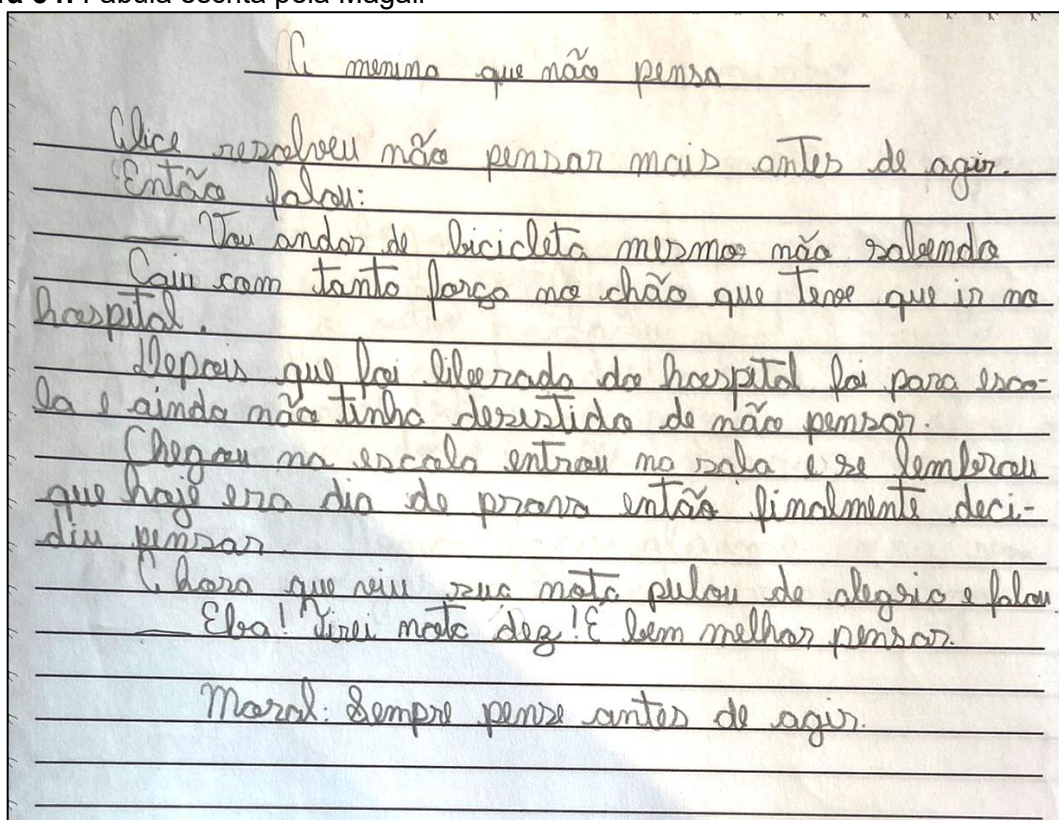 Fábula escrita pela Magali
A menina que não pensa
Alice resolveu não pensar mais antes de agir.
Então falou:
— Vou andar de bicicleta mesmo não sabendo
Caiu com tanta força no chão que teve que ir no
hospital.
Depois que foi liberada do hospital foi para esco-
la e ainda não tinha desistido de não pensar.
Chegou na escola entrou na sala e se lembrou
que hoje era dia de prova então finalmente deci-
diu pensar.
A hora que viu sua nota pulou de alegria e falou
— Eba! Tirei nota dez! É bem melhor pensar.
Moral: Sempre pense antes de agir.